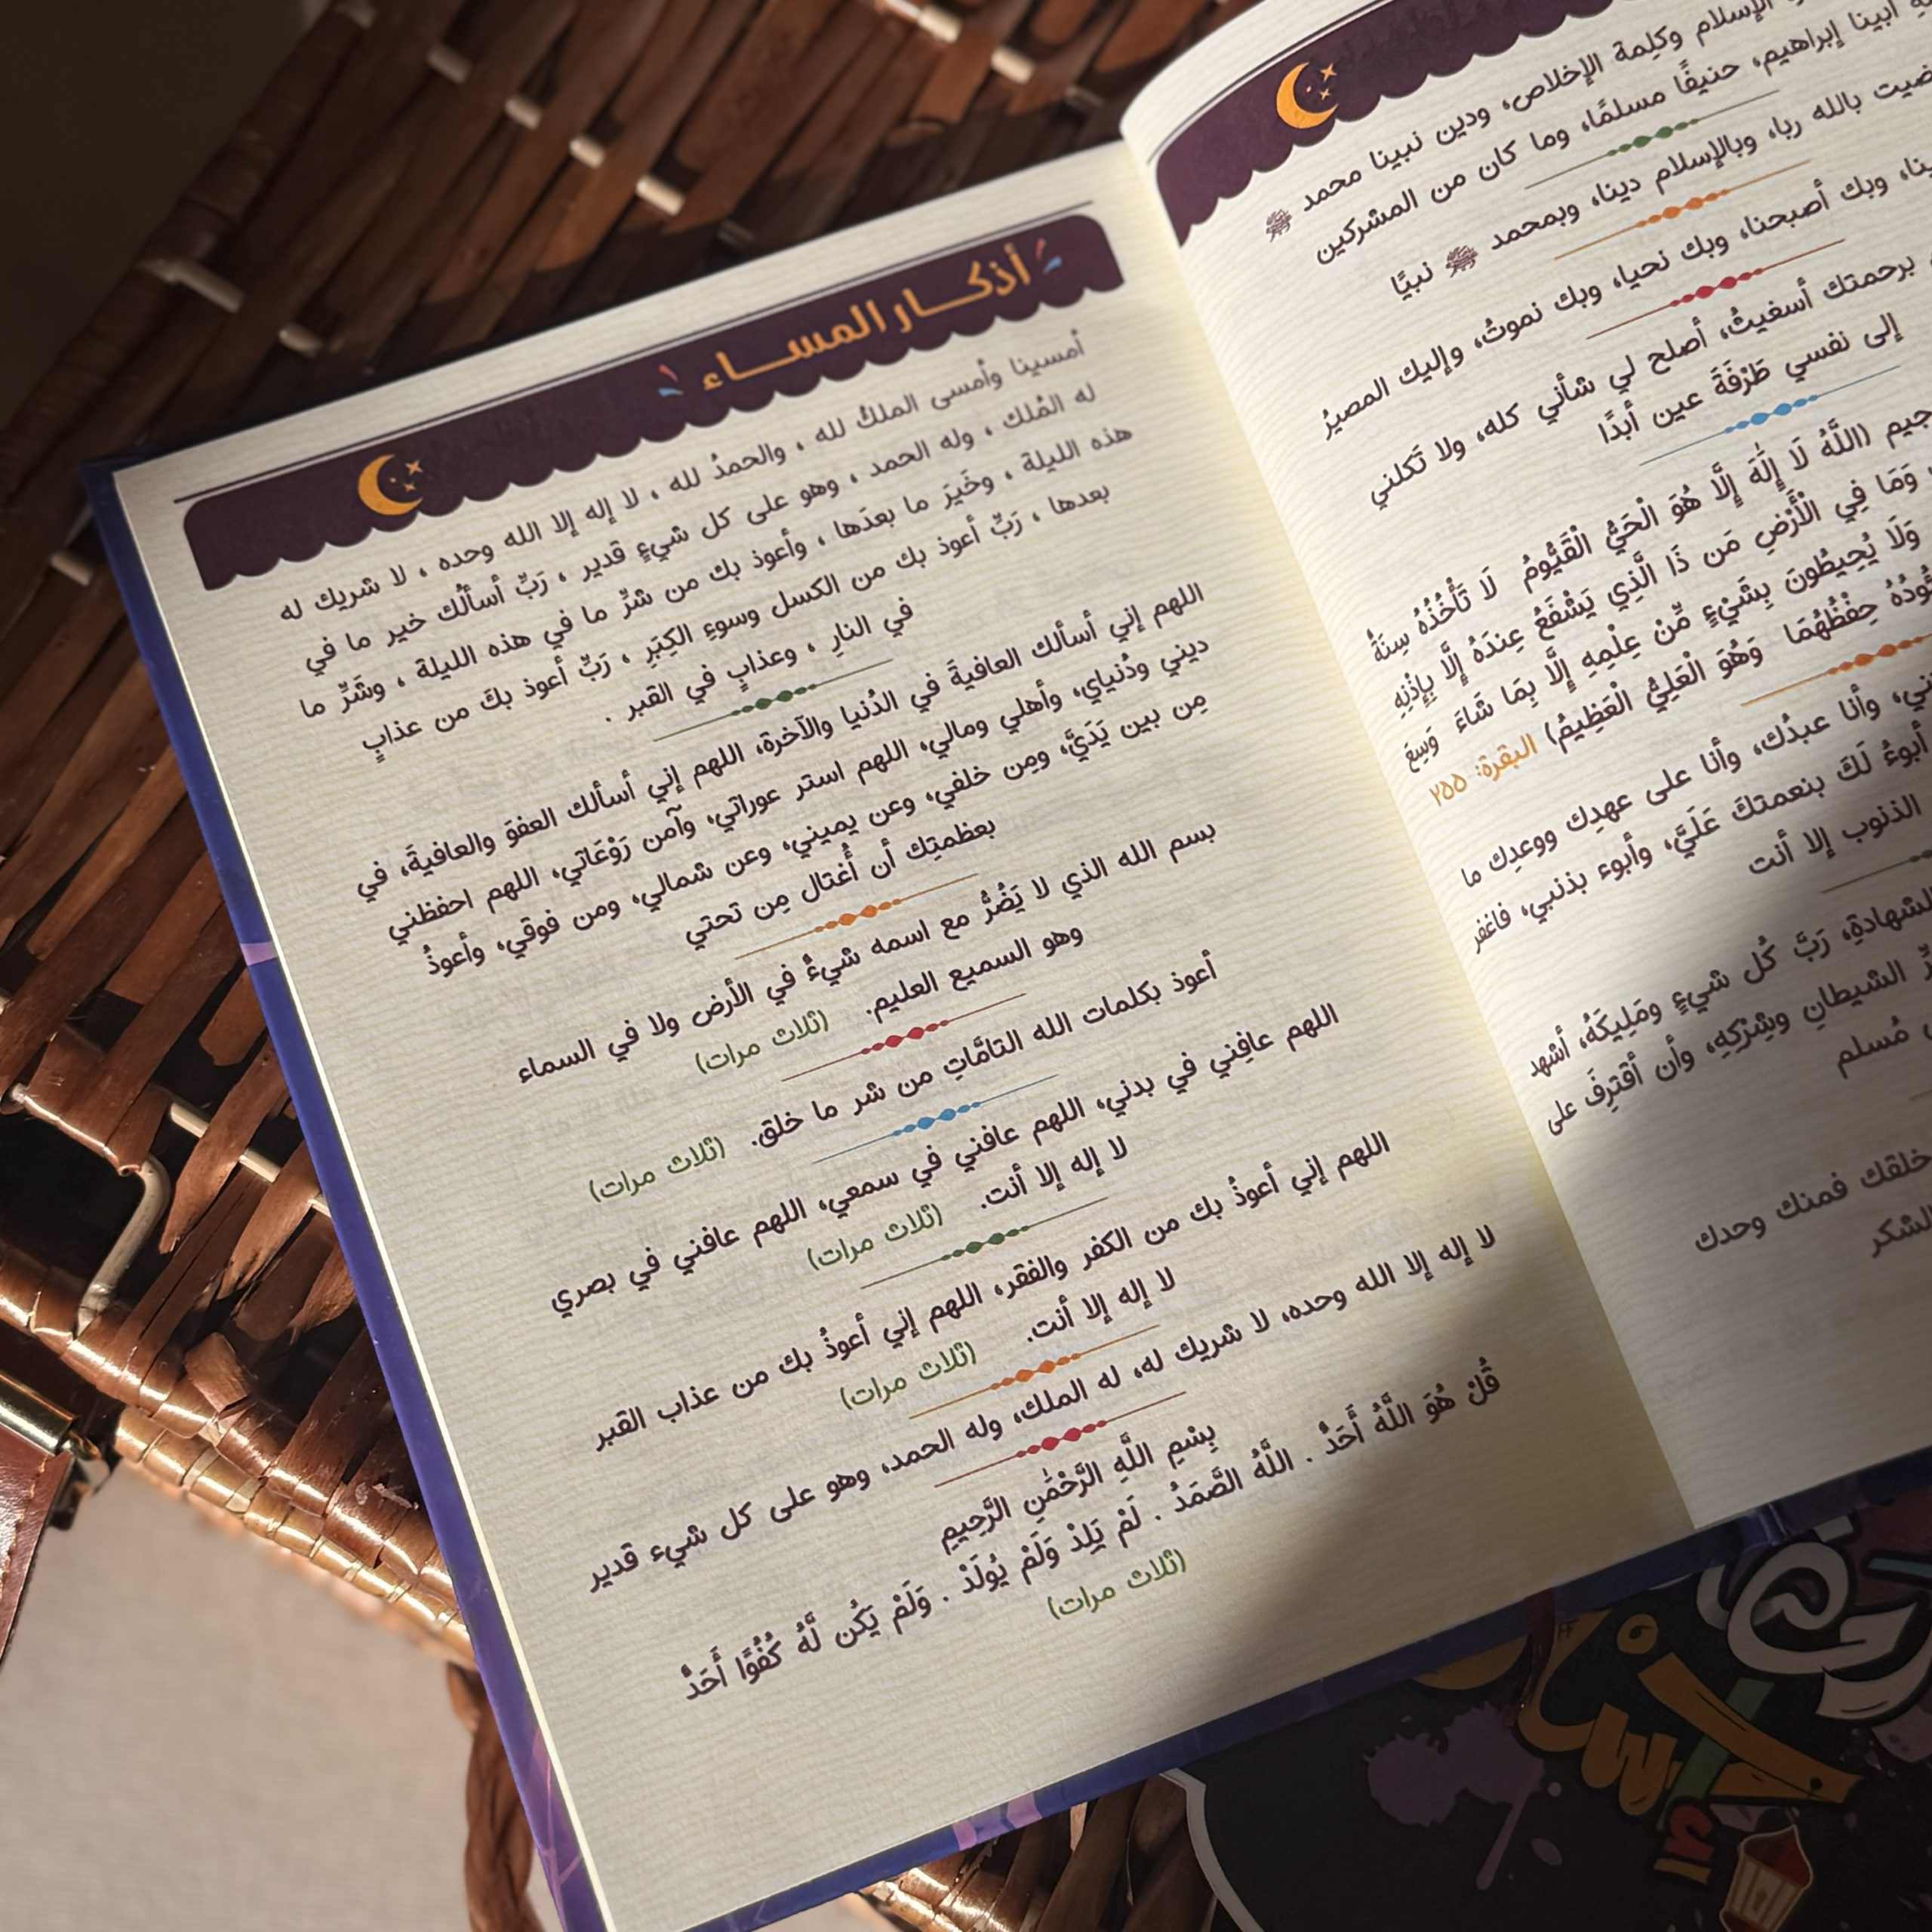 الإسلام وكلمة الإخلاص، ودين نبينا محمد ﷺ
أبينا إبراهيم، حنيفًا مسلمًا، وما كان من المشركين
بالله ربا، وبالإسلام دينا، وبمحمد ﷺ نبيًا
وبك أصبحنا، وبك نحيا، وبك نموتُ، وإليك المصيرُ
برحمتك أسغيثُ، أصلح لي شأني كله، ولا تَكلني
إلى نفسي طَرْفَةَ عين أبدًا
(اللَّهُ لَا إِلَٰهَ إِلَّا هُوَ الْحَيُّ الْقَيُّومُ لَا تَأْخُذُهُ سِنَةٌ
وَمَا فِي الْأَرْضِ مَن ذَا الَّذِي يَشْفَعُ عِندَهُ إِلَّا بِإِذْنِهِ
وَلَا يُحِيطُونَ بِشَيْءٍ مِّنْ عِلْمِهِ إِلَّا بِمَا شَاءَ وَسِعَ
حِفْظُهُمَا وَهُوَ الْعَلِيُّ الْعَظِيمُ) البقرة: ٢٥٥
وأنا عبدُك، وأنا على عهدِك ووعدِك ما
أبوءُ لَكَ بنعمتكَ عَلَيَّ، وأبوء بذنبي، فاغفر
الذنوب إلا أنت
الشهادةِ، رَبَّ كُل شيءٍ ومَلِيكَهُ، أشهد
الشيطانِ وشِرْكِهِ، وأن أقترِفَ على
مُسلم
خلقك فمنك وحدك
الشكر
أذكـــار المســـاء
أمسينا وأمسى الملكُ لله ، والحمدُ لله ، لا إله إلا الله وحده ، لا شريك له
له المُلك ، وله الحمد ، وهو على كل شيءٍ قدير ، رَبِّ أسألُك خير ما في
هذه الليلة ، وخَيرَ ما بعدَها ، وأعوذ بك من شرِّ ما في هذه الليلة ، وشَرِّ ما
بعدها ، رَبِّ أعوذ بك من الكسل وسوءِ الكِبَرِ ، رَبِّ أعوذ بكَ من عذابٍ
في النارِ ، وعذابٍ في القبر .
اللهم إني أسألك العافيةَ في الدُنيا والآخرة، اللهم إني أسألك العفوَ والعافيةَ، في
ديني ودُنياي، وأهلي ومالي، اللهم استر عوراتي، وآمن رَوْعَاتي، اللهم احفظني
مِن بين يَدَيَّ، ومِن خلفي، وعن يميني، وعن شمالي، ومن فوقي، وأعوذُ
بعظمتِك أن أُغتال مِن تحتي
بسم الله الذي لا يَضُرُّ مع اسمه شيءٌ في الأرض ولا في السماء
وهو السميع العليم. (ثلاث مرات)
أعوذ بكلمات الله التامَّاتِ من شر ما خلق. (ثلاث مرات)
اللهم عافِني في بدني، اللهم عافني في سمعي، اللهم عافني في بصري
لا إله إلا أنت. (ثلاث مرات)
اللهم إني أعوذُ بك من الكفر والفقر، اللهم إني أعوذُ بك من عذاب القبر
لا إله إلا أنت. (ثلاث مرات)
لا إله إلا الله وحده، لا شريك له، له الملك، وله الحمد، وهو على كل شيء قدير
بِسْمِ اللَّهِ الرَّحْمَٰنِ الرَّحِيمِ
قُلْ هُوَ اللَّهُ أَحَدٌ . اللَّهُ الصَّمَدُ . لَمْ يَلِدْ وَلَمْ يُولَدْ . وَلَمْ يَكُن لَّهُ كُفُوًا أَحَدٌ
(ثلاث مرات)